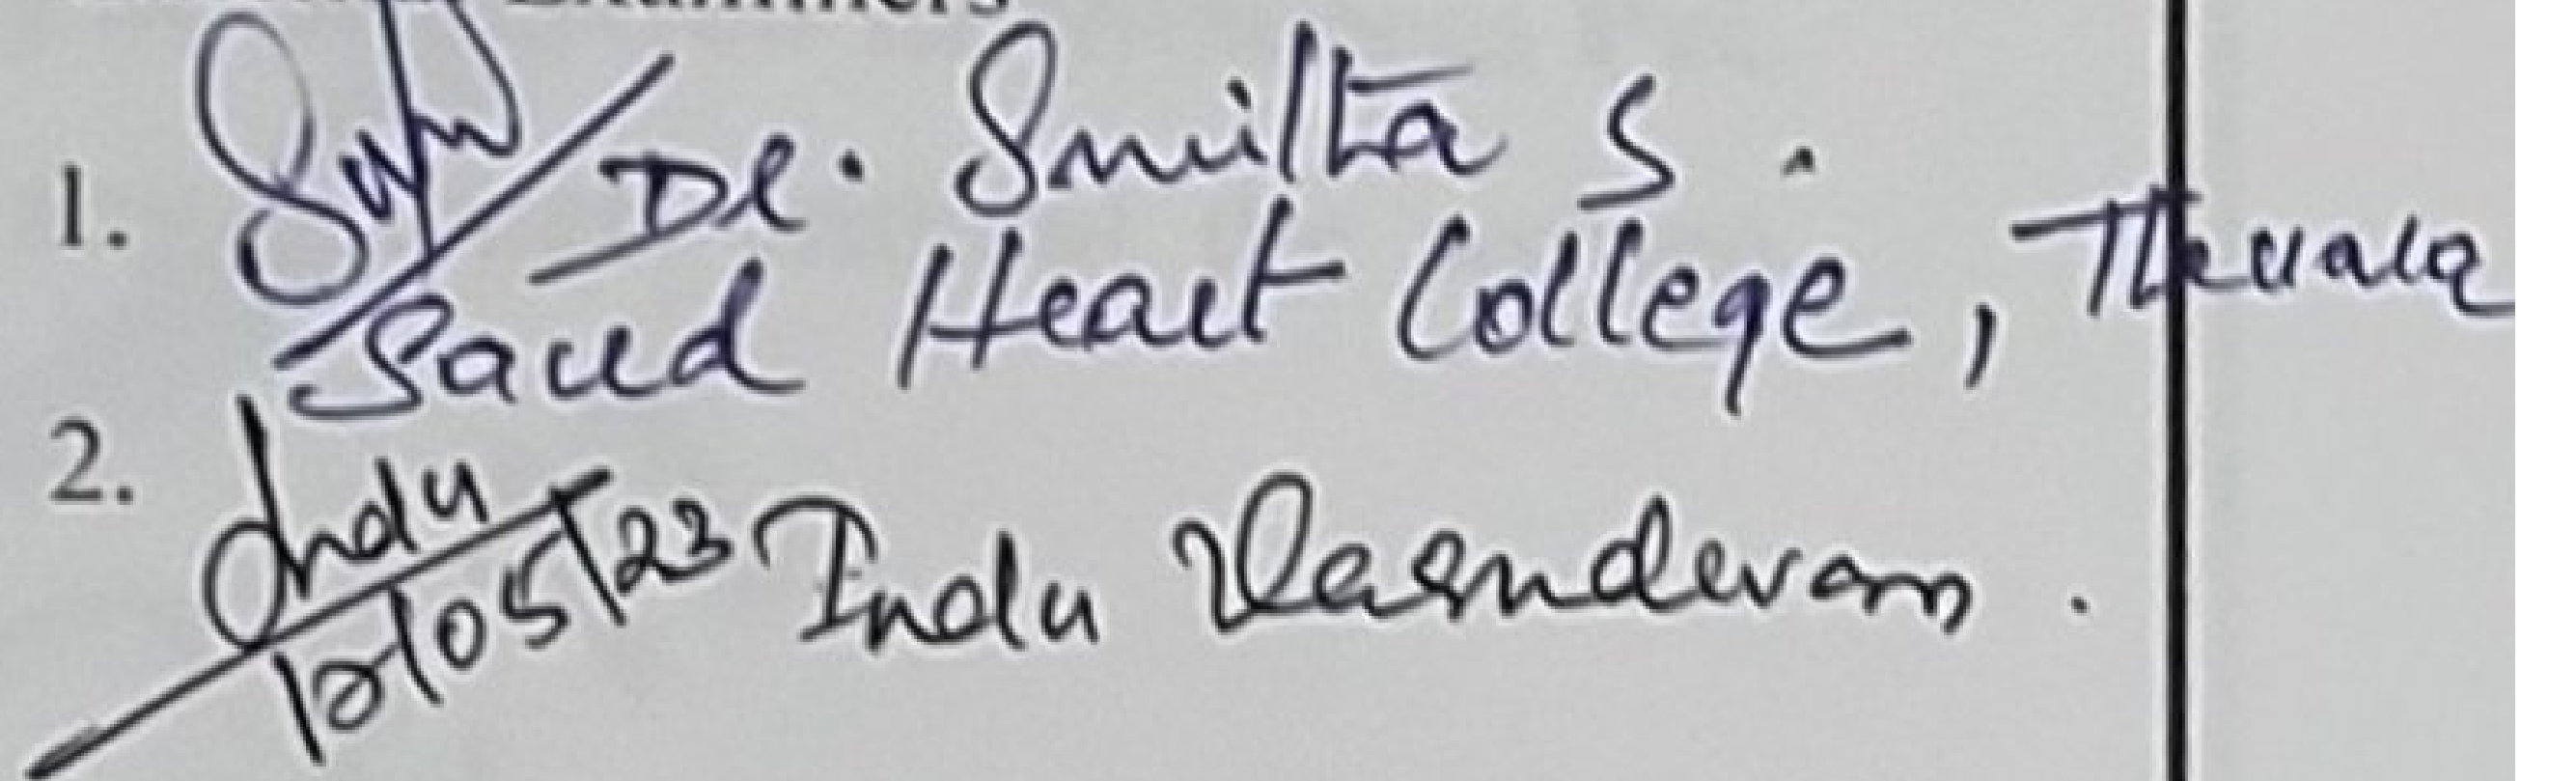 Examiners
1. Dr. Smitha S.
Sacred Heart College, Thevara
2. Indu 12/05/23 Indu Vasudevan.